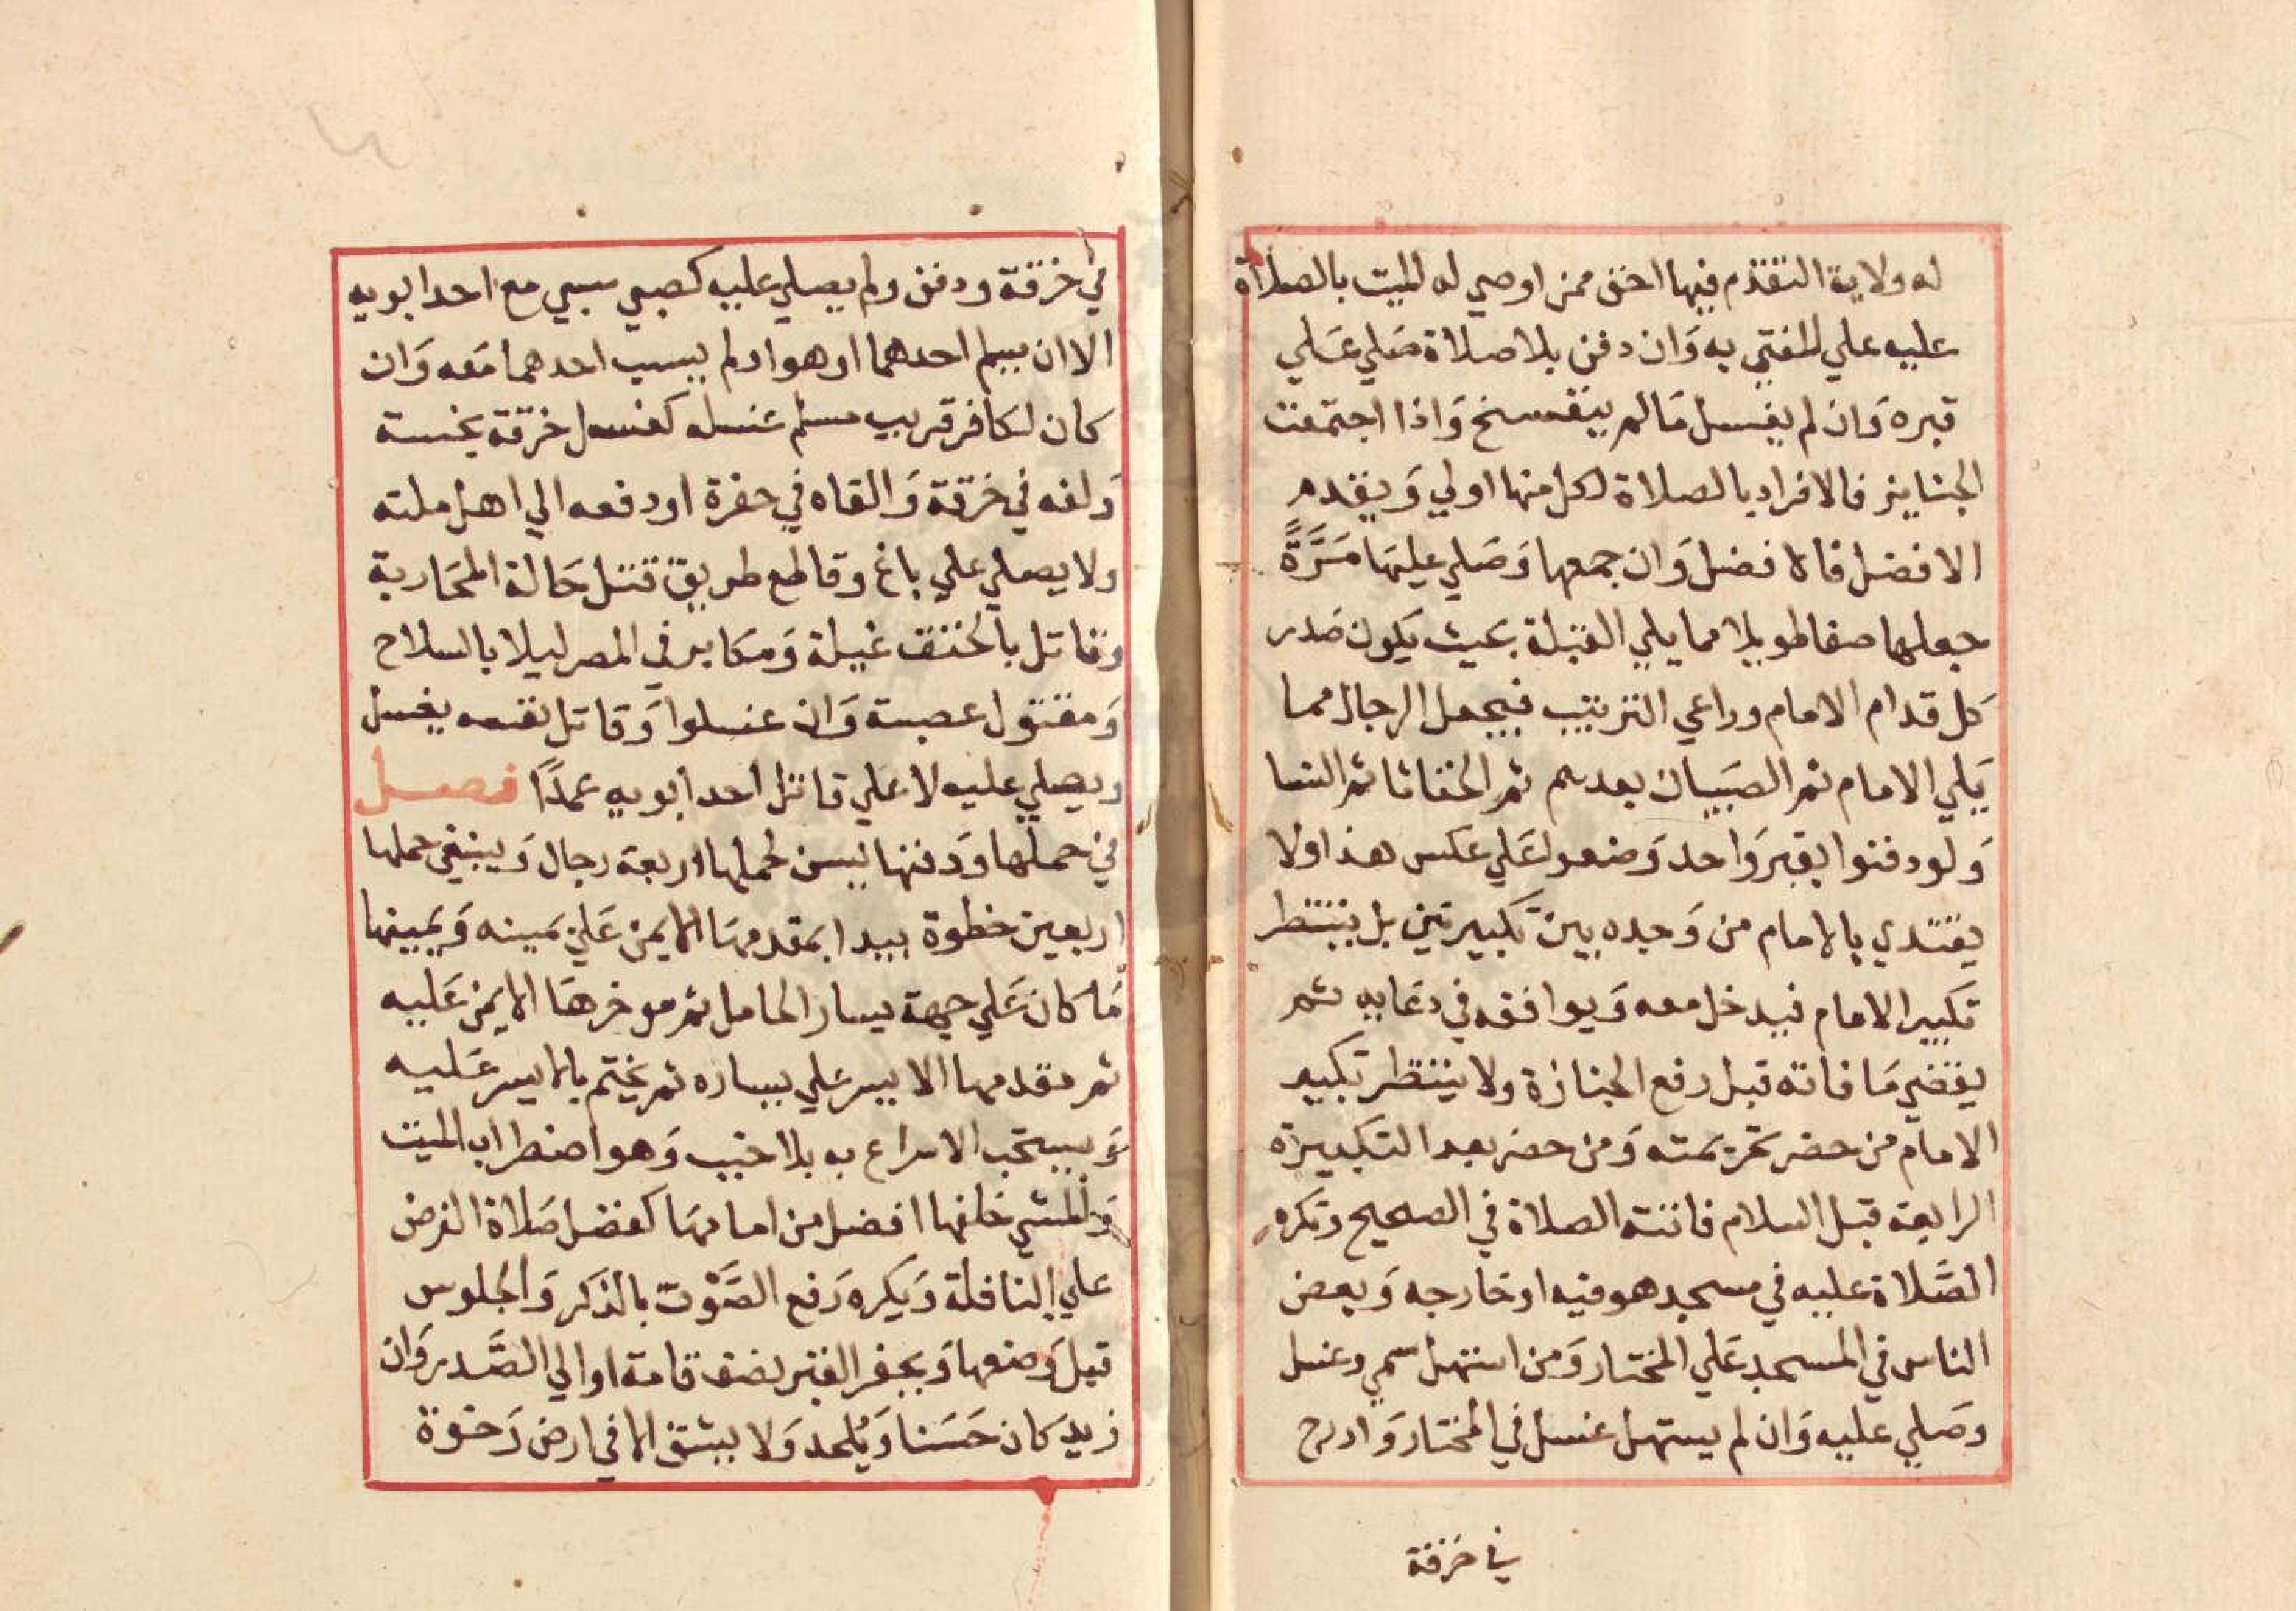 له ولاية التقدم فيها احق ممن اوصي له الميت بالصلاة
عليه علي المفتي به وَان دفن بلا صلاة صَلي عَلي
قبره وَان لم يغسل مَا لم يتفسخ وَاذا اجتمعت
الجنايز فالافراد بالصلاة لكل منها اولي وَيقدم
الافضل فالافضل وَان جمعها وَصَلي عليهَا مَرَّةً
جعلها صفا طويلا مما يلي القبلة بحيث يكون صَدر
كل قدام الامام وراعي الترتيب فيجعل الرجال مما
يَلي الامام ثم الصبَيان بعدهم ثم الخناثا ثم النسا
وَلو دفنوا بقبر وَاحد وَضعوا عَلي عكس هذا ولا
يقتدي بالامام من وَجده بين تكبيرتين بل ينتظر
تكبير الامام فيدخل معه وَيوافقه في دعَايه ثم
يقضي مَا فاته قبل رفع الجنازة ولا ينتظر تكبير
الامام من حضر تحريمته وَمن حضر بعد التكبيرة
الرابعة قبل السلام فاتته الصلاة في الصحيح وتكره
الصَّلاة عليه في مسجد هو فيه او خارجه وَبعض
الناس في المسجد عَلي المختار وَمن استهل سمي وغسل
وصَلي عليه وَان لم يستهل غسل في المختار وَادرج
في خرقة
في خرقة ودفن ولم يصلي عليه كصبي سبي مع احد ابويه
الا ان يسلم احدهما او هو او لم يسب احدهما مَعه وَان
كان لكافر قريب مسلم غسله كغسل خرقة نجسة
وَلفه في خرقة وَالقاه في حفرة او دفعه الي اهل ملته
ولا يصلي علي باغ وقاطع طريق قتل حَالة المحَاربة
وقاتل بالخنق غيلة وَمكابر في المصر ليلا بالسلاح
وَمقتول عصبة وَان غسلوا وَقاتل نفسه يغسل
ويصلي عليه لا علي قاتل احد ابويه عمدًا فصل
في حملها وَدفنها يسن لحملها اربعة رجال وَينبغي حملها
اربعين خطوة يبدا بمقدمهَا الايمن عَلي يمينه وَيمينها
مَا كان عَلي جهة يسار الحامل ثم موخرهَا الايمن عَليه
ثم مقدمها الايسر علي يساره ثم يختم بالايسر عَليه
وَيستحب الاسراع به بلا خبب وَهو اضطراب الميت
وَالمشي خلفها افضل من امامهَا كفضل صَلاة الفرض
علي النافلة وَيكره رَفع الصَّوْت بالذكر وَالجلوس
قبل وَضعها وَيحفر القبر نصف قامة او الي الصَّدر وَان
زيد كان حَسَنا وَيُلحد وَلا يشق الا في ارض رَخوة